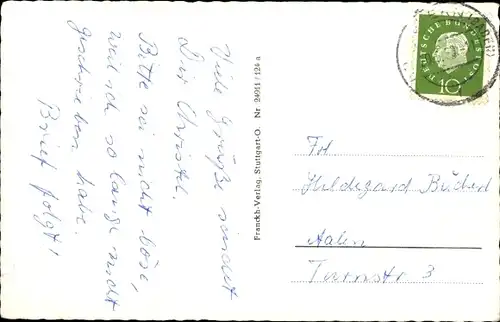 Viele Grüße sendet
Dir Christel.
Bitte sei nicht böse,
weil ich so lange nicht
geschrieben habe.
Brief folgt!
Franckh-Verlag, Stuttgart-O. Nr 24911/124 a
DEUTSCHE BUNDESPOST
10
Hildegard
Aalen
Turnstr 3